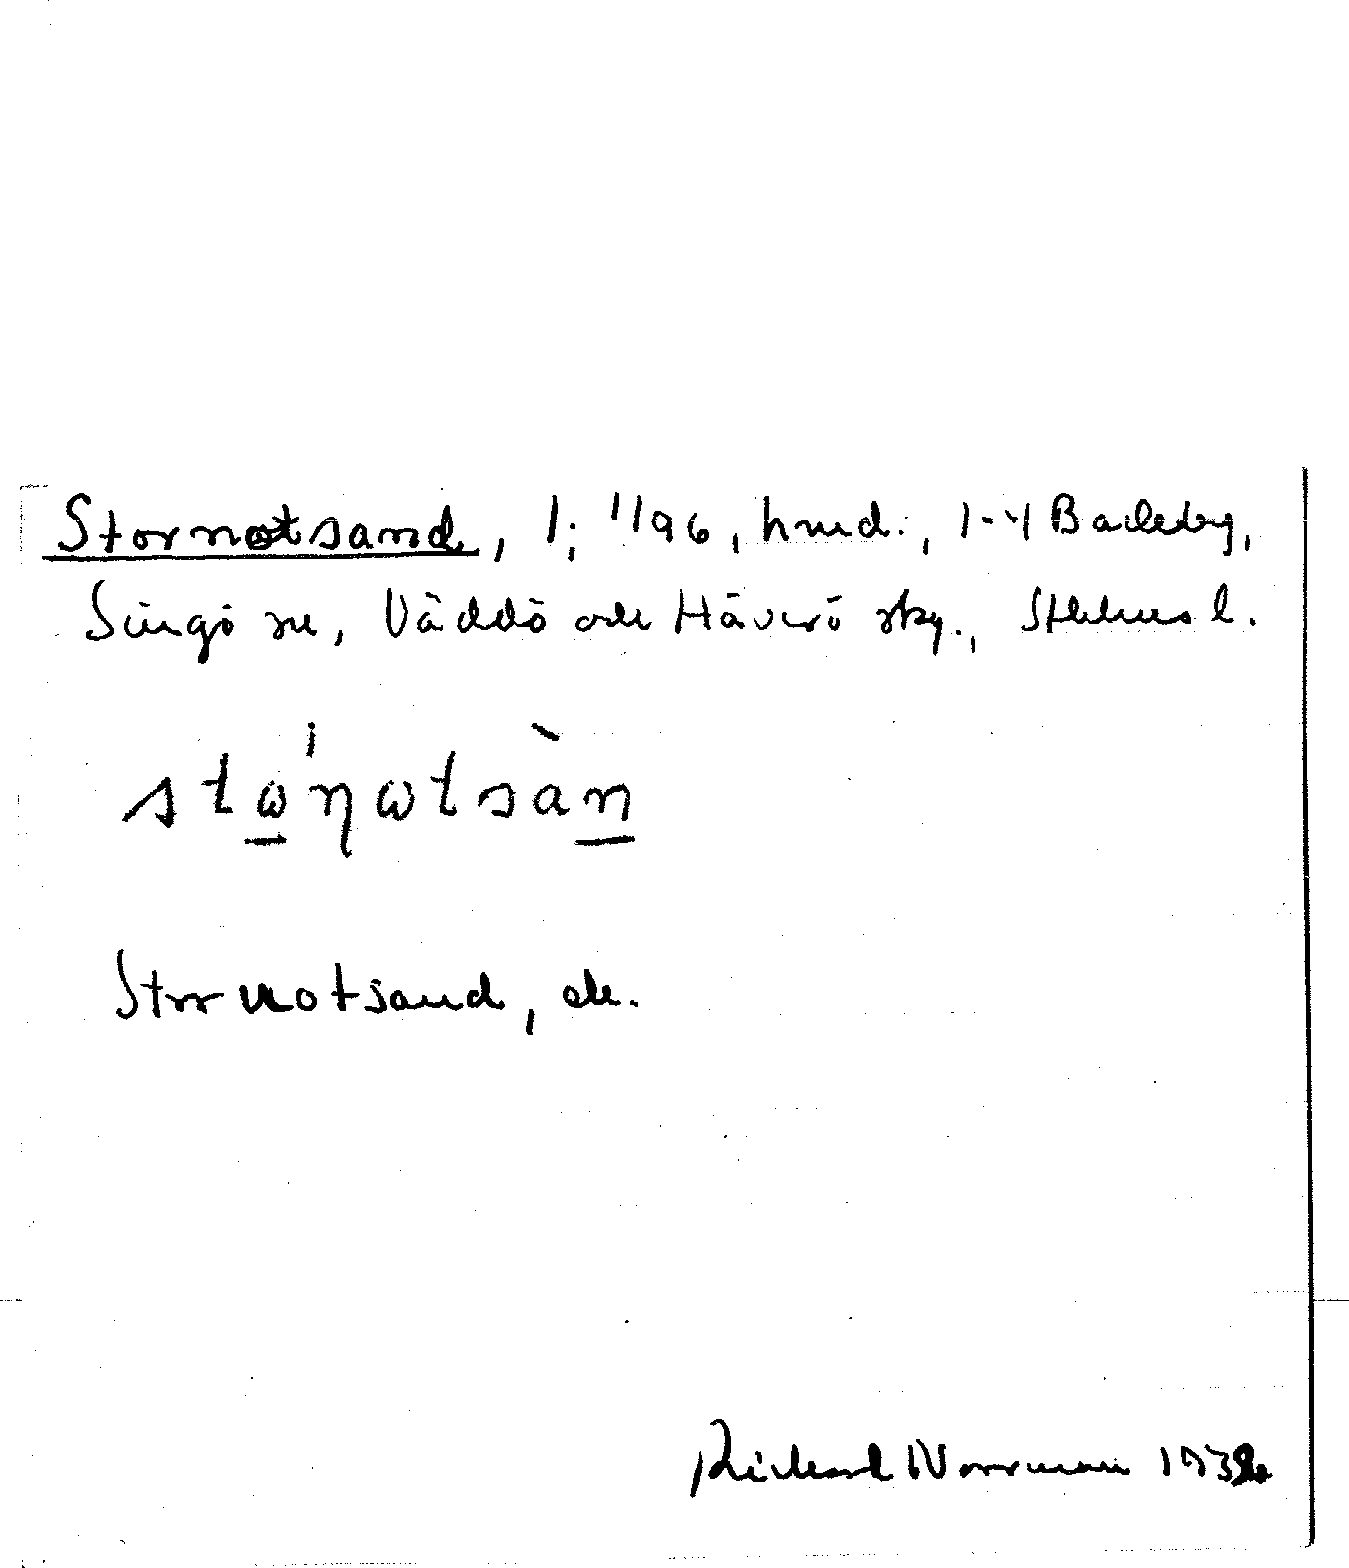 Stornotsand, 1; 1/96, hmd., 1-4 Backeby,
Singö sn, Väddö och Häverö skg., Sthlms l.
stώ̲ηωtsàn̲
Stornotsand, ek.
Rickard Norrman 1932